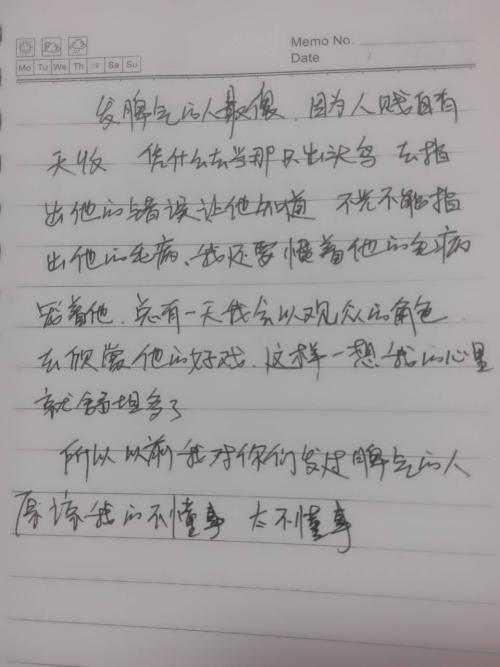 Memo No.
Mo Tu We Th Fr Sa Su
Date
发脾气的人最傻 因为人贱自有
天收 凭什么去当那只出头鸟 去指
出他的错误让他知道 不光不能指
出他的毛病、我还要惯着他的毛病
宠着他、总有一天我会以观众的角色
去欣赏他的好戏、这样一想我的心里
就舒坦多了
所以以前我对你们发过脾气的人
原谅我的不懂事 太不懂事